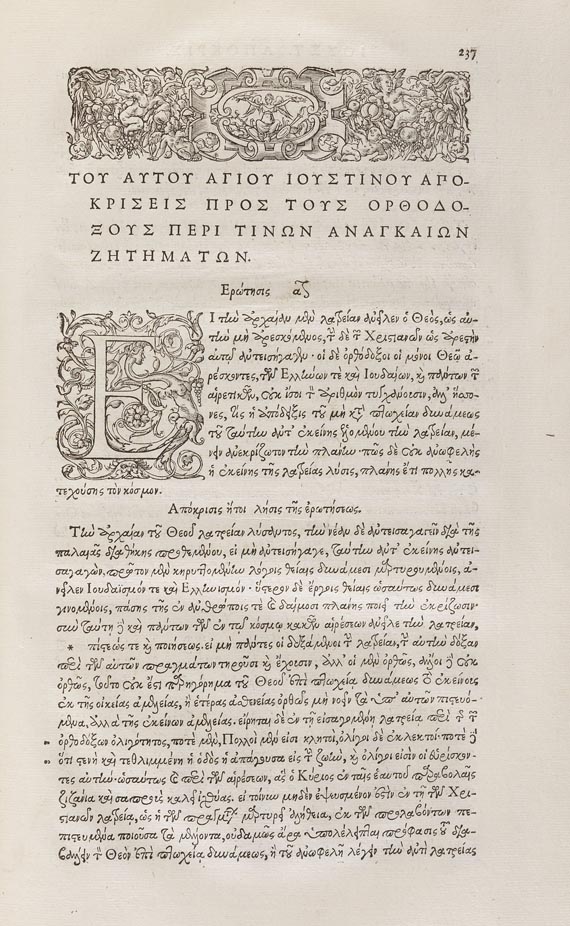 237
ΤΟΥ ΑΥΤΟΥ ΑΓΙΟΥ ΙΟΥΣΤΙΝΟΥ ΑΠΟ-
ΚΡΙΣΕΙΣ ΠΡΟΣ ΤΟΥΣ ΟΡΘΟΔΟ-
ΞΟΥΣ ΠΕΡΙ ΤΙΝΩΝ ΑΝΑΓΚΑΙΩΝ
ΖΗΤΗΜΑΤΩΝ.
Ερώτησις
ΕΙ τὴν ἀρχαίαν μὲν λατρείαν ἀνεῖλεν ὁ Θεὸς, ὡς αὐ-
τῷ μὴ ἀρεσκόμενος, τὴν δὲ τῶν Χριστιανῶν ὡς ἀρεστὴν
αὐτῷ ἀντεισήγαγεν· οἱ δὲ ὀρθόδοξοι οἱ μόνοι Θεῷ ἀ-
ρέσκοντες, τῶν Ελλήνων τε καὶ Ιουδαίων, καὶ πάντων τῶν
αἱρετικῶν, οὐκ ἴσοι τὸν ἀριθμὸν τυγχάνουσιν, ἀλλ' ἥσσο-
νες, τίς ἡ ἀπόδειξις τοῦ μὴ κατὰ πτωχείαν δυνάμεως
τοῦ ταύτην ἀντ' ἐκείνης δεξαμένου τὴν λατρείαν, μέ-
νειν ἀνεκρίζωτον τὴν πλάνην· πῶς δὲ οὐκ ἀνωφελὴς
ἡ ἐκείνης τῆς λατρείας λύσις, πλάνης ἔτι πολλῆς κα-
τεχούσης τὸν κόσμον.
Απόκρισις ἤτοι λύσις τῆς ἐρωτήσεως.
Τὴν ἀρχαίαν τοῦ Θεοῦ λατρείαν λύσαντος, τὴν νέαν δὲ ἀντεισαγαγεῖν διὰ τῆς
παλαιᾶς διαθήκης προθεμένου, εἰ μὴ ἀντεισήγαγε, ταύτην ἀντ' ἐκείνης ἀντει-
σαγαγὼν, πρῶτον μὲν κηρυττομένην λόγοις θείαις δυνάμεσι μαρτυρουμένοις, ἀ-
νεῖλεν Ιουδαϊσμόν τε καὶ Ελληνισμόν· ὕστερον δὲ ἔργοις θείαις ὡσαύτως δυνάμεσι
γινομένοις, πάσης τῆς ἐν ἀνθρώποις τε καὶ δαίμοσι πλάνης ποιεῖ τὴν ἐκρίζωσιν·
σὺν ταύτῃ δὲ καὶ πάντων τῶν ἐν τῷ κόσμῳ κακῶν αἱρέσεων ἀνεῖλε τὴν λατρείαν,
* πίστεώς τε καὶ ποιήσεως. εἰ μὴ πάντες οἱ δεξάμενοι τὴν λατρείαν, τὴν αὐτὴν δόξαν
περὶ τῶν αὐτῶν πραγμάτων τηροῦσι καὶ ἔχουσιν, ἀλλ' οἱ μὲν ὀρθῶς, ἄλλοι δὲ οὐκ
ὀρθῶς, τοῦτο οὐκ ἔστι κατηγόρημα τοῦ Θεοῦ ἐπὶ πτωχείᾳ δυνάμεως καὶ ἐκείνοις
ἐκ τῆς οἰκείας ἀμελείας, ἢ ἑτέρας ἀσθενείας ὀρθῶς μὴ νοεῖν τὰ ὑπ' αὐτῶν πιστευό-
μενα, ἀλλὰ τῆς ἐκείνων ἀμελείας. εἴρηται δὲ ἐν τῇ εἰσαγομένῃ λατρείᾳ περὶ τῆς τῶν
ὀρθοδόξων ὀλιγότητος, ποτὲ μὲν, Πολλοὶ μὲν εἰσι κλητοὶ, ὀλίγοι δὲ ἐκλεκτοί· ποτὲ δὲ
ὅτι στενὴ καὶ τεθλιμμένη ἡ ὁδὸς ἡ ἀπάγουσα εἰς τὴν ζωὴν, καὶ ὀλίγοι εἰσὶν οἱ εὑρίσκον-
τες αὐτήν· ὡσαύτως καὶ περὶ τῶν αἱρέσεων, ἃς ὁ Κύριος ἐν ταῖς ἑαυτοῦ παραβολαῖς
ζιζάνια καὶ σαπροὺς καλεῖ ἰχθύας. εἰ τοίνυν μηδὲν ἐψευσμένον ἐστὶν ἐν τῇ τῶν Χρι-
στιανῶν λατρείᾳ, ὡς ἡ τῶν πραγμάτων μαρτυρεῖ ἀλήθεια, ἐκ τῶν προλαβόντων πε-
πιστευμένα ποιοῦσα τὰ μέλλοντα, οὐδαμῶς ἄρα ὑπολέλειπται πρόφασις τοῦ δια-
βάλλειν τὸν Θεὸν ἐπὶ πτωχείᾳ δυνάμεως, ἢ τοῦ ἀνωφελῆ λέγειν τὴν ἀντὶ λατρείας